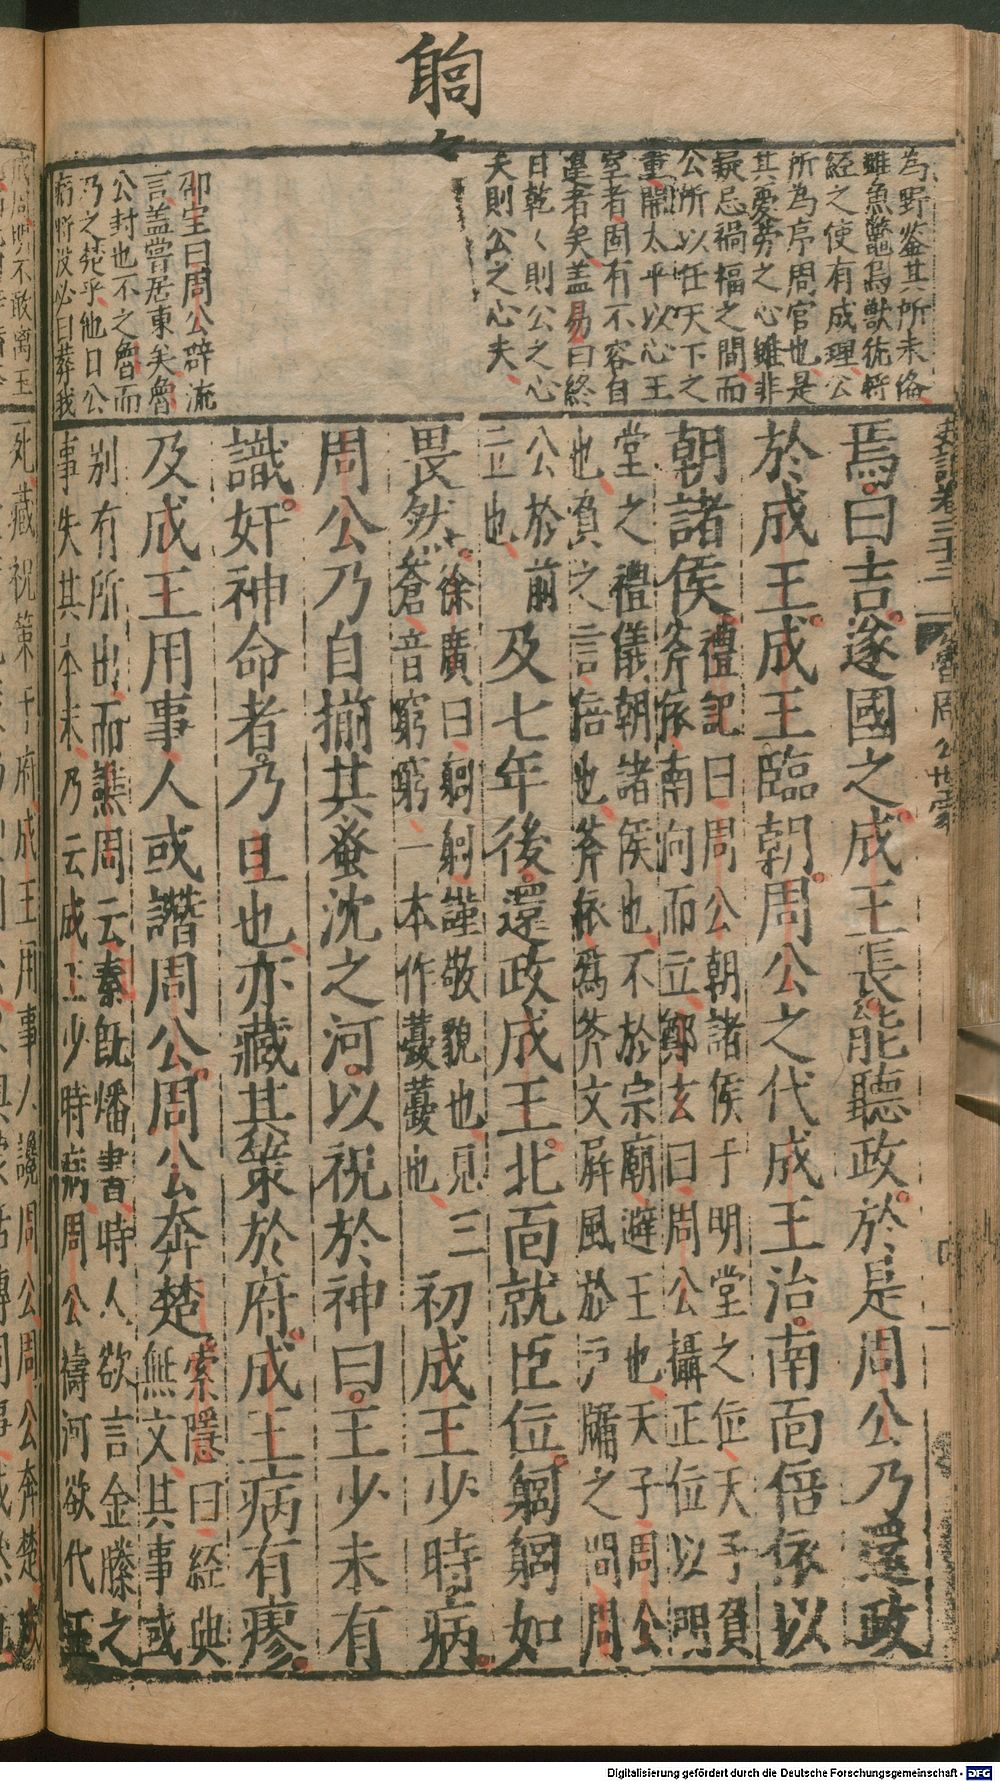 躹々
為野鉴其所未偹
雖魚鼈鳥獸佐將
經之使有成理公
所為序周官也是
其憂勞之心雖非
疑忌禍福之間而
公所以任天下之
重開太平以心王
室者固有不容自
遑者矣盖易曰終
日乾〻則公之心
矣則公之心夫
卲宝曰周公辟流
言盖嘗居東矣魯
公封也不之魯而
乃之楚乎他日公
病將没必曰葬我
史記卷三十三 魯周公世家 四
焉曰吉遂國之成王長能聽政於是周公乃還政
於成王成王臨朝周公之代成王治南面倍依以
朝諸侯禮記曰周公朝諸侯于明堂之位天子負
斧依南向而立鄭玄曰周公攝正位以明
堂之禮儀朝諸侯也不於宗廟避王也天子周公
也負之言倍也斧依爲斧文屏風於戶牖之間周
公於前
立也及七年後還政成王北面就臣位躹躹如
畏然徐廣曰躹躹謹敬貌也見三
蒼音窮窮一本作夔夔也初成王少時病
周公乃自揃其蚤沈之河以祝於神曰王少未有
識奸神命者乃旦也亦藏其策於府成王病有瘳
及成王用事人或譖周公周公奔楚索隱曰經典
無文其事或
别有所出而譙周云秦旣燔書時人欲言金縢之
事失其本末乃云成王少時病周公禱河欲代王
病周明不敢离王
死藏祝策于府成王用事人讒周公周公奔楚成
Digitalisierung gefördert durch die Deutsche Forschungsgemeinschaft - DFG